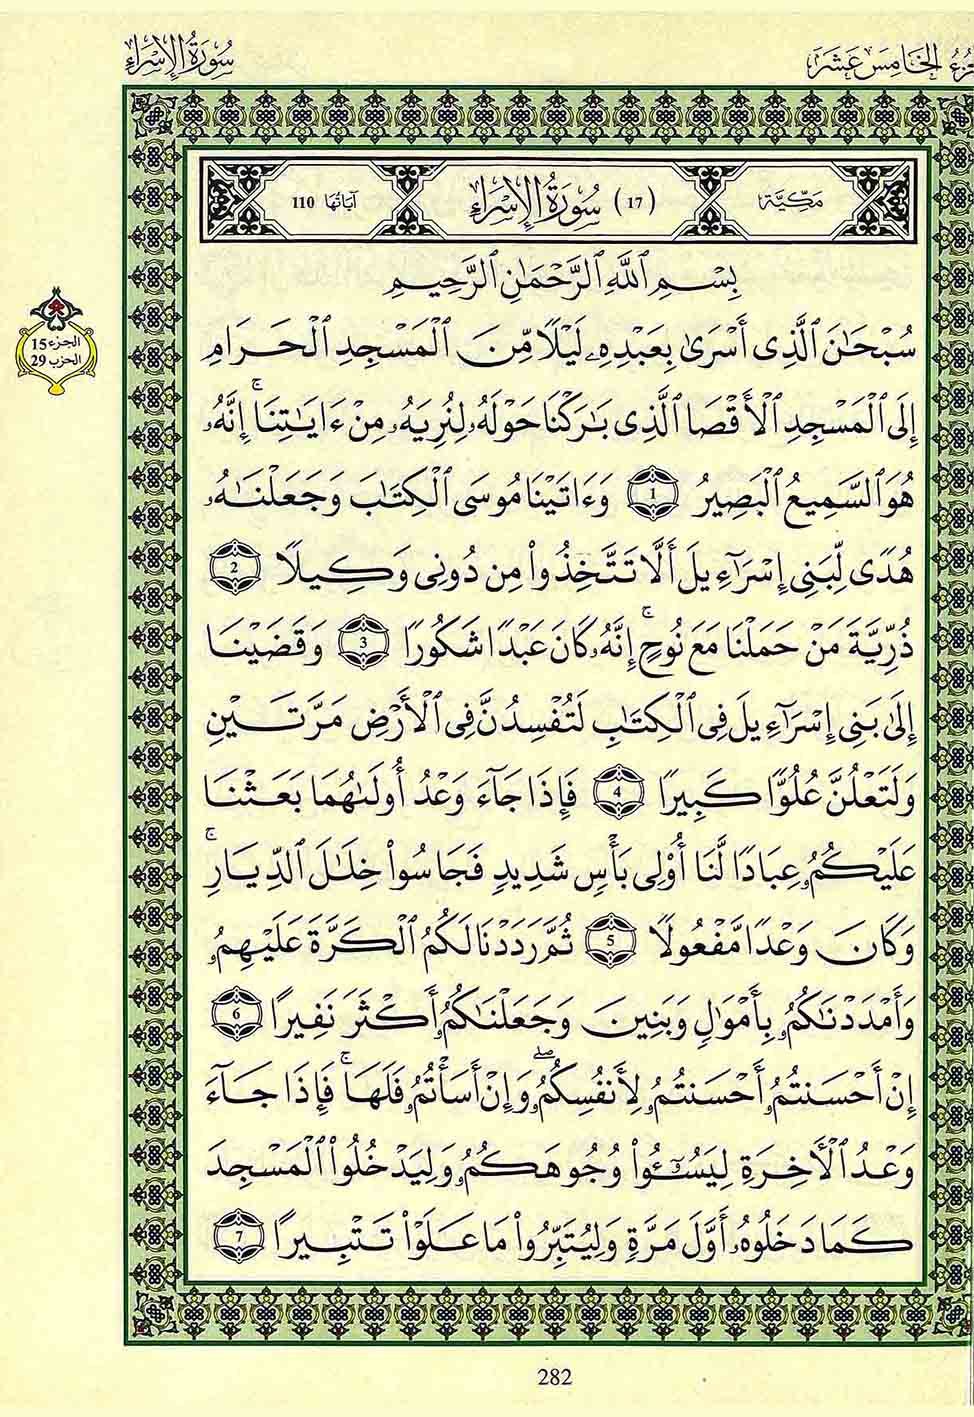 الْخَامِسَ عَشَرَ
سُورَةُ الْإِسْرَاءِ
مَكِيَّة (17) سُورَةُ الْإِسْرَاءِ آيَاتُهَا 110
بِسْمِ ٱللَّهِ ٱلرَّحْمَٰنِ ٱلرَّحِيمِ
سُبْحَٰنَ ٱلَّذِى أَسْرَىٰ بِعَبْدِهِۦ لَيْلًا مِّنَ ٱلْمَسْجِدِ ٱلْحَرَامِ
إِلَى ٱلْمَسْجِدِ ٱلْأَقْصَا ٱلَّذِى بَٰرَكْنَا حَوْلَهُۥ لِنُرِيَهُۥ مِنْ ءَايَٰتِنَا ۚ إِنَّهُۥ
هُوَ ٱلسَّمِيعُ ٱلْبَصِيرُ 1 وَءَاتَيْنَا مُوسَى ٱلْكِتَٰبَ وَجَعَلْنَٰهُۥ
هُدًى لِّبَنِى إِسْرَآءِيلَ أَلَّا تَتَّخِذُوا۟ مِن دُونِى وَكِيلًا 2
ذُرِّيَّةَ مَنْ حَمَلْنَا مَعَ نُوحٍ ۚ إِنَّهُۥ كَانَ عَبْدًا شَكُورًا 3 وَقَضَيْنَا
إِلَىٰ بَنِى إِسْرَآءِيلَ فِى ٱلْكِتَٰبِ لَتُفْسِدُنَّ فِى ٱلْأَرْضِ مَرَّتَيْنِ
وَلَتَعْلُنَّ عُلُوًّا كَبِيرًا 4 فَإِذَا جَآءَ وَعْدُ أُولَىٰهُمَا بَعَثْنَا
عَلَيْكُمُۥ عِبَادًا لَّنَا أُو۟لِى بَأْسٍ شَدِيدٍ فَجَاسُوا۟ خِلَٰلَ ٱلدِّيَارِ ۚ
وَكَانَ وَعْدًا مَّفْعُولًا 5 ثُمَّ رَدَدْنَا لَكُمُ ٱلْكَرَّةَ عَلَيْهِمُۥ
وَأَمْدَدْنَٰكُمُۥ بِأَمْوَٰلٍ وَبَنِينَ وَجَعَلْنَٰكُمُۥ أَكْثَرَ نَفِيرًا 6
إِنْ أَحْسَنتُمُۥ أَحْسَنتُمُۥ لِأَنفُسِكُمُۥ ۖ وَإِنْ أَسَأْتُمُۥ فَلَهَا ۚ فَإِذَا جَآءَ
وَعْدُ ٱلْأَخِرَةِ لِيَسُـُٔوا۟ وُجُوهَكُمُۥ وَلِيَدْخُلُوا۟ ٱلْمَسْجِدَ
كَمَا دَخَلُوهُۥ أَوَّلَ مَرَّةٍ وَلِيُتَبِّرُوا۟ مَا عَلَوْا۟ تَتْبِيرًا 7
الجزء 15
الحزب 29
282